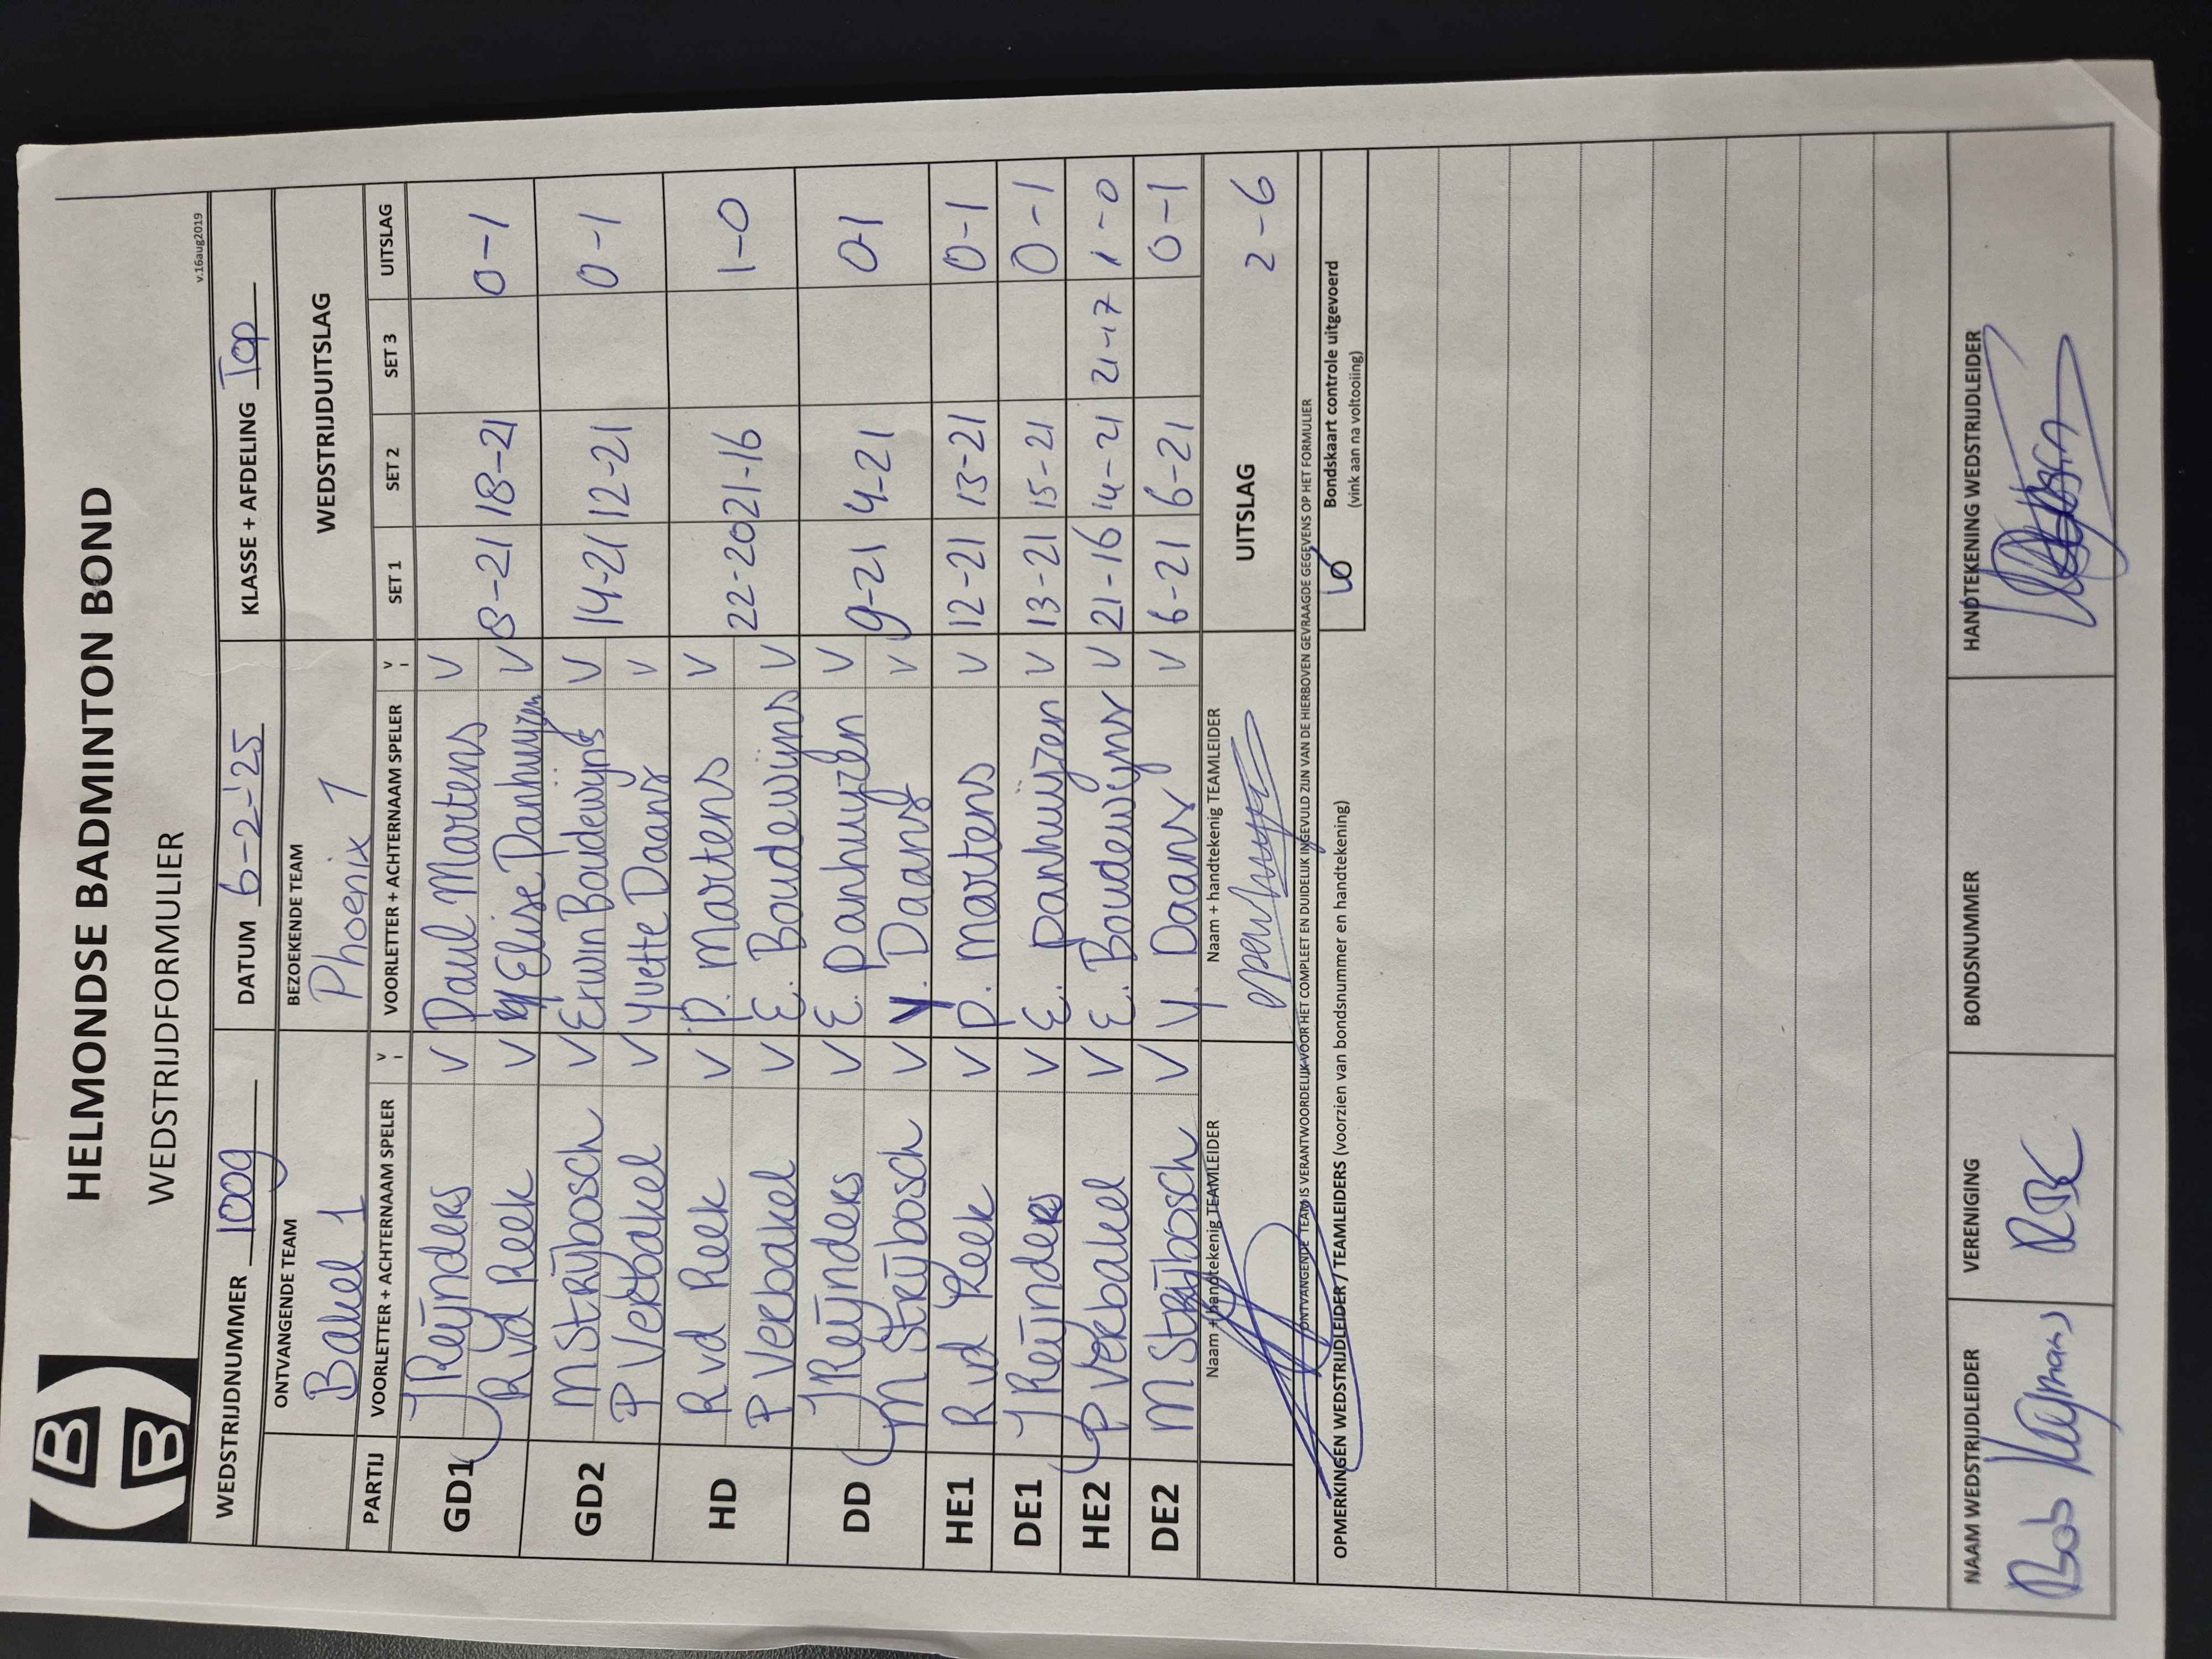 HELMONDSE BADMINTON BOND
WEDSTRIJDFORMULIER
v.16aug2019
WEDSTRIJDNUMMER 1009 DATUM 6-2-'25 KLASSE + AFDELING Top
ONTVANGENDE TEAM BEZOEKENDE TEAM WEDSTRIJDUITSLAG
Bakel 1 Phoenix 1
PARTIJ VOORLETTER + ACHTERNAAM SPELER V VOORLETTER + ACHTERNAAM SPELER V SET 1 SET 2 SET 3 UITSLAG
GD1 J Reijnders V Paul Martens V 8-21 18-21 0-1
R vd Reek V Elise Panhuijzen V
GD2 M Strijbosch V Erwin Boudewijns V 14-21 12-21 0-1
P Verbakel V Yvette Daans V
HD R vd Reek V P. Martens V 22-20 21-16 1-0
P Verbakel V E. Boudewijns V
DD J Reijnders V E. Panhuyzen V 9-21 4-21 0-1
M Strijbosch V Y. Daans V
HE1 R vd Reek V P. Martens V 12-21 13-21 0-1
DE1 J Reijnders V E. Panhuijzen V 13-21 15-21 0-1
HE2 P Verbakel V E. Boudewijns V 21-16 14-21 21-17 1-0
DE2 M Strijbosch V Y. Daans V 6-21 6-21 0-1
Naam + handtekenig TEAMLEIDER Naam + handtekenig TEAMLEIDER UITSLAG 2-6
ONTVANGENDE TEAM IS VERANTWOORDELIJK VOOR HET COMPLEET EN DUIDELIJK INGEVULD ZIJN VAN DE HIERBOVEN GEVRAAGDE GEGEVENS OP HET FORMULIER
OPMERKINGEN WEDSTRIJDLEIDER / TEAMLEIDERS (voorzien van bondsnummer en handtekening)
Bondskaart controle uitgevoerd
(vink aan na voltooiing)
NAAM WEDSTRIJDLEIDER VERENIGING BONDSNUMMER HANDTEKENING WEDSTRIJDLEIDER
Bob